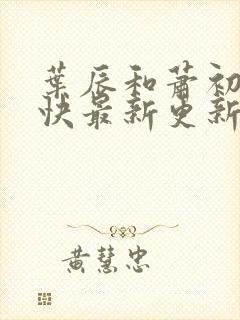 葉辰和蕭初
快最新更新
黃慧忠